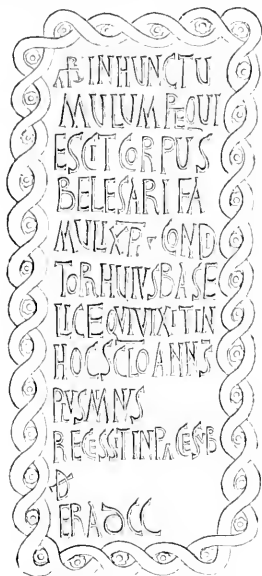 IN HUNC TU
MULUM REQUI
ESCIT CORPUS
BELESARI FA
MULI XPI COND
TORHUIUSBASE
LICE QUI VIXIT IN
HOC SCLO ANNS
PLVS MNS
RECESSIT IN PACE SUB
D
ERA DCC